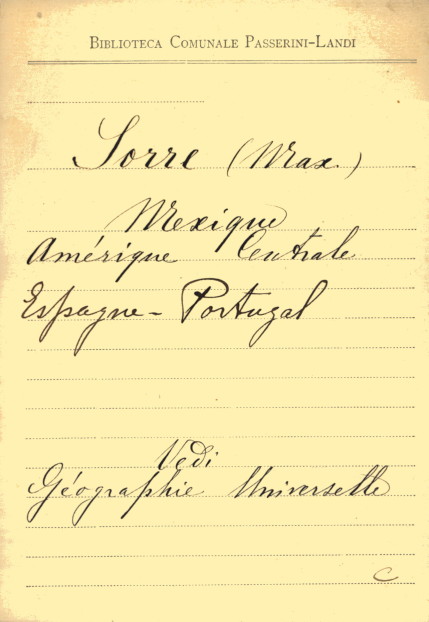 BIBLIOTECA COMUNALE PASSERINI-LANDI
Sorre (Max.)
Mexique
Amérique Centrale
Espagne - Portugal
Vedi
Géographie Universelle
C